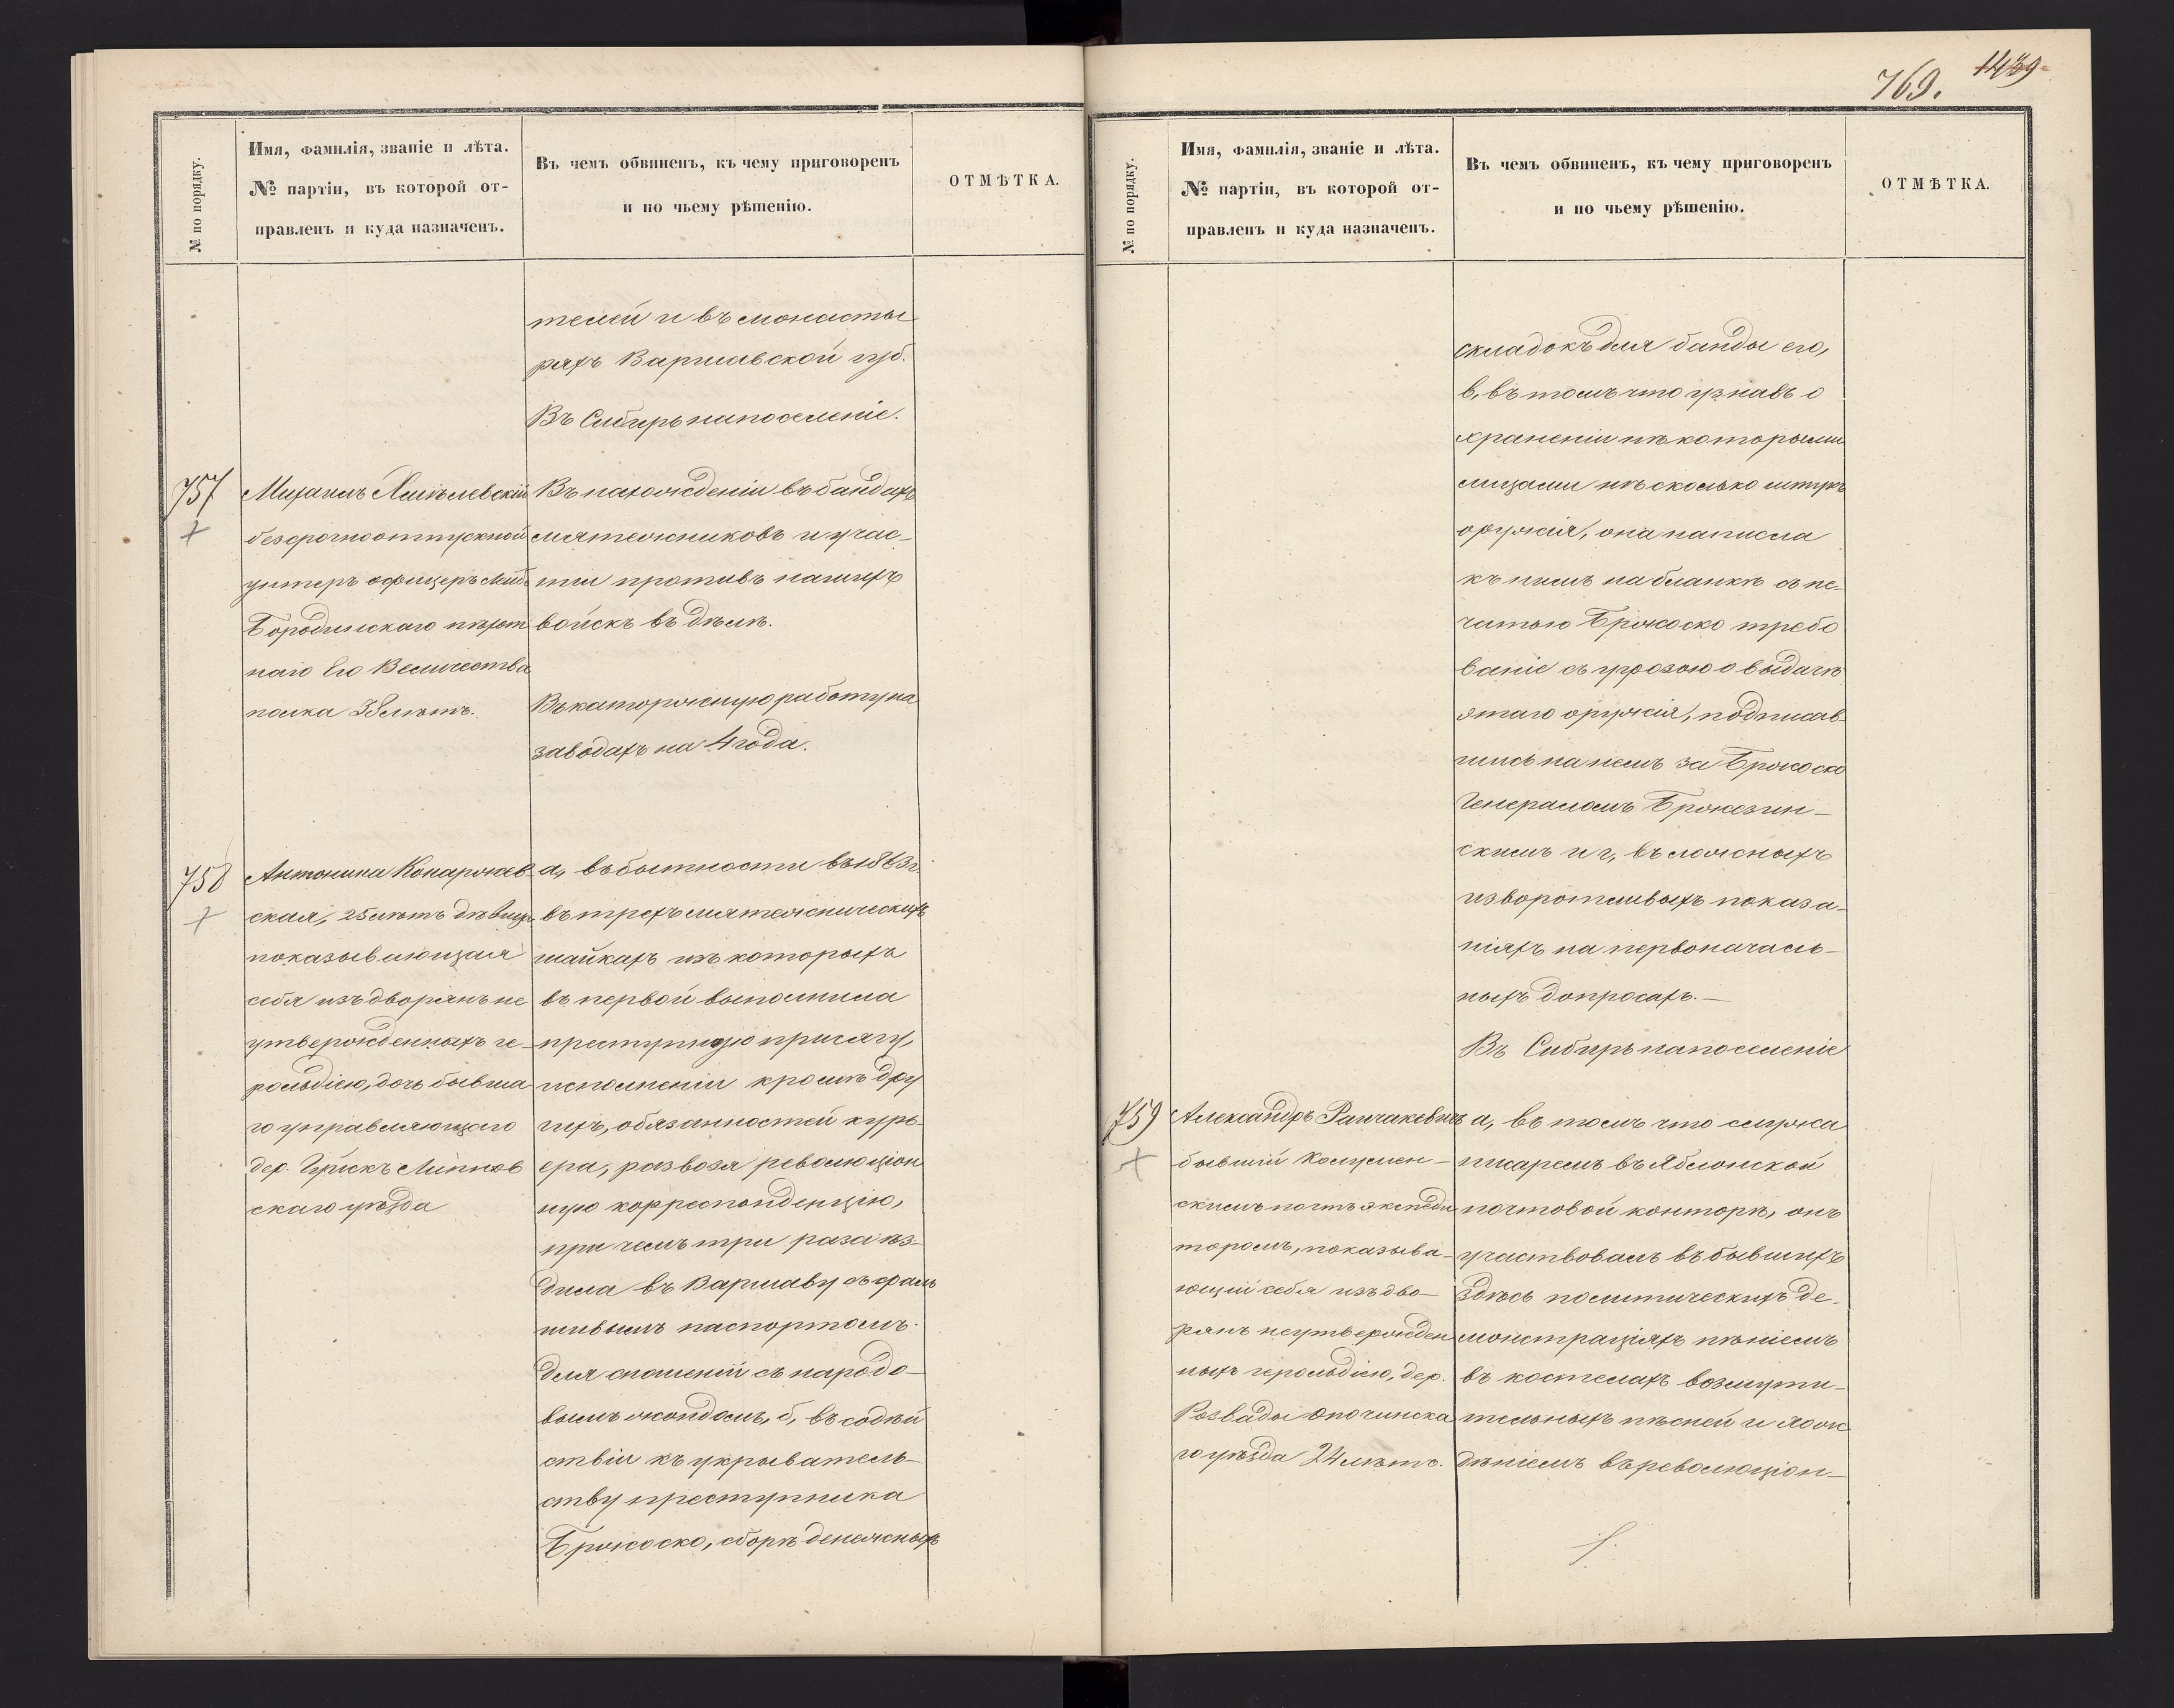 № по порядку.
Имя, фамилія, званіе и лѣта.
№ партіи, въ которой от-
правленъ и куда назначенъ.
Въ чемъ обвиненъ, къ чему приговоренъ
и по чьему рѣшенію.
ОТМѢТКА.
телей и въ монасты
ряхъ Варшавской губ.
Въ Сибирь на поселеніе.
757
Михаилъ Хмѣлевскій
безсрочноотпускной
унтеръ офицеръ Лейб
Бородинскаго пѣхот
наго Его Величества
полка 38 лѣтъ.
Въ нахожденіи въ бандахъ
мятежниковъ и учас-
тіи противъ нашихъ
войскъ въ дѣлѣ.
Въ каторжную работу на
заводахъ на 4 года.
758
Антонина Конаржев-
ская, 25 лѣтъ дѣвица
показывающая
себя изъ дворянъ не
утвержденныхъ ге-
рольдіею, дочь бывша
го управляющаго
дер. Липнов
скаго уѣзда
а, въ бытности въ 1863 г.
въ трехъ мятежническихъ
шайкахъ изъ которыхъ
въ первой выполнила
преступную присягу,
исполненіи кромѣ дру
гихъ, обязанностей курь-
ера, развозя революціон
ную корреспонденцію,
при чемъ три раза ѣз-
дила въ Варшаву съ фаль
шивымъ паспортомъ
для сношеній съ народо-
вымъ жондомъ, б, въ содѣй
ствіи къ укрыватель-
ству преступника
Бржоско, сборѣ денежныхъ
769. 1439
№ по порядку.
Имя, фамилія, званіе и лѣта.
№ партіи, въ которой от-
правленъ и куда назначенъ.
Въ чемъ обвиненъ, къ чему приговоренъ
и по чьему рѣшенію.
ОТМѢТКА.
складокъ для банды его,
в, въ томъ что узнавъ о
храненіи нѣкоторыми
лицами нѣсколько штукъ
оружія, она написла
къ нимъ на бланкѣ съ пе-
чатью Бржоско требо
ваніе съ угрозою о выдачѣ
этаго оружія, подписав-
шись на немъ за Бржоско
Генераломъ Бржезин-
скимъ и г, въ ложныхъ
изворотливыхъ показа-
ніяхъ на первоначаль-
ныхъ допросахъ.-
Въ Сибирь на поселеніе
759
Александръ
бывшій
скимъ почтъ экспеди
торомъ, показыва-
ющій себя изъ дво-
рянъ неутвержден
ныхъ герольдіею, дер.
Розвады Опочинска
го уѣзда 24 лѣтъ.
а, въ томъ что служа
писаремъ въ Яблонской
почтовой конторѣ, онъ
участвовалъ въ бывшихъ
здѣсь политическихъ де-
монстраціяхъ пѣніемъ
въ костелахъ возмути-
тельныхъ пѣсней и хож
деніемъ въ революціон-